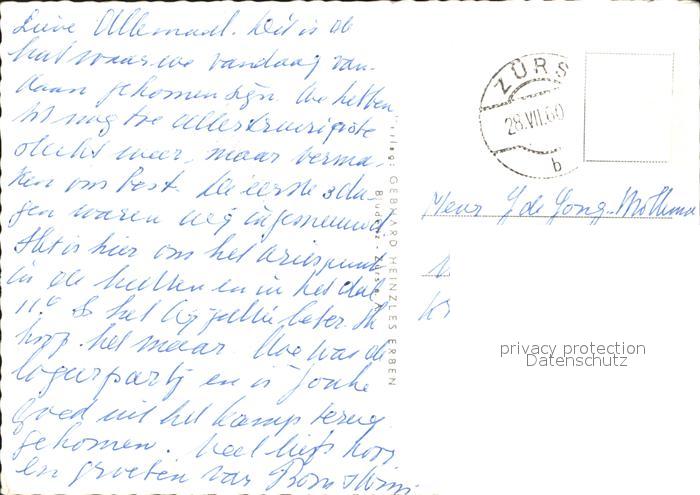 Lieve Allemaal. Dit is de
hut waar we vandaag van-
daan gekomen zijn. We hebben
tot nog toe allertreurigste
slecht weer, maar verma-
ken ons best. De eerste 3 da-
gen waren wij ingesneeuwd.
Het is hier om het vriespunt
in de hutten en in het dal
11°. Is het bij jullie beter. Ik
hoop het maar. Hoe was de
logeerpartij en is Jonke
goed uit het kamp terug
gekomen. Veel liefs hoor
en groeten van
Verlag: GEBHARD HEINZLES ERBEN
ZÜRS
28.VII.60
b
Y de Jong-
privacy protection
Datenschutz